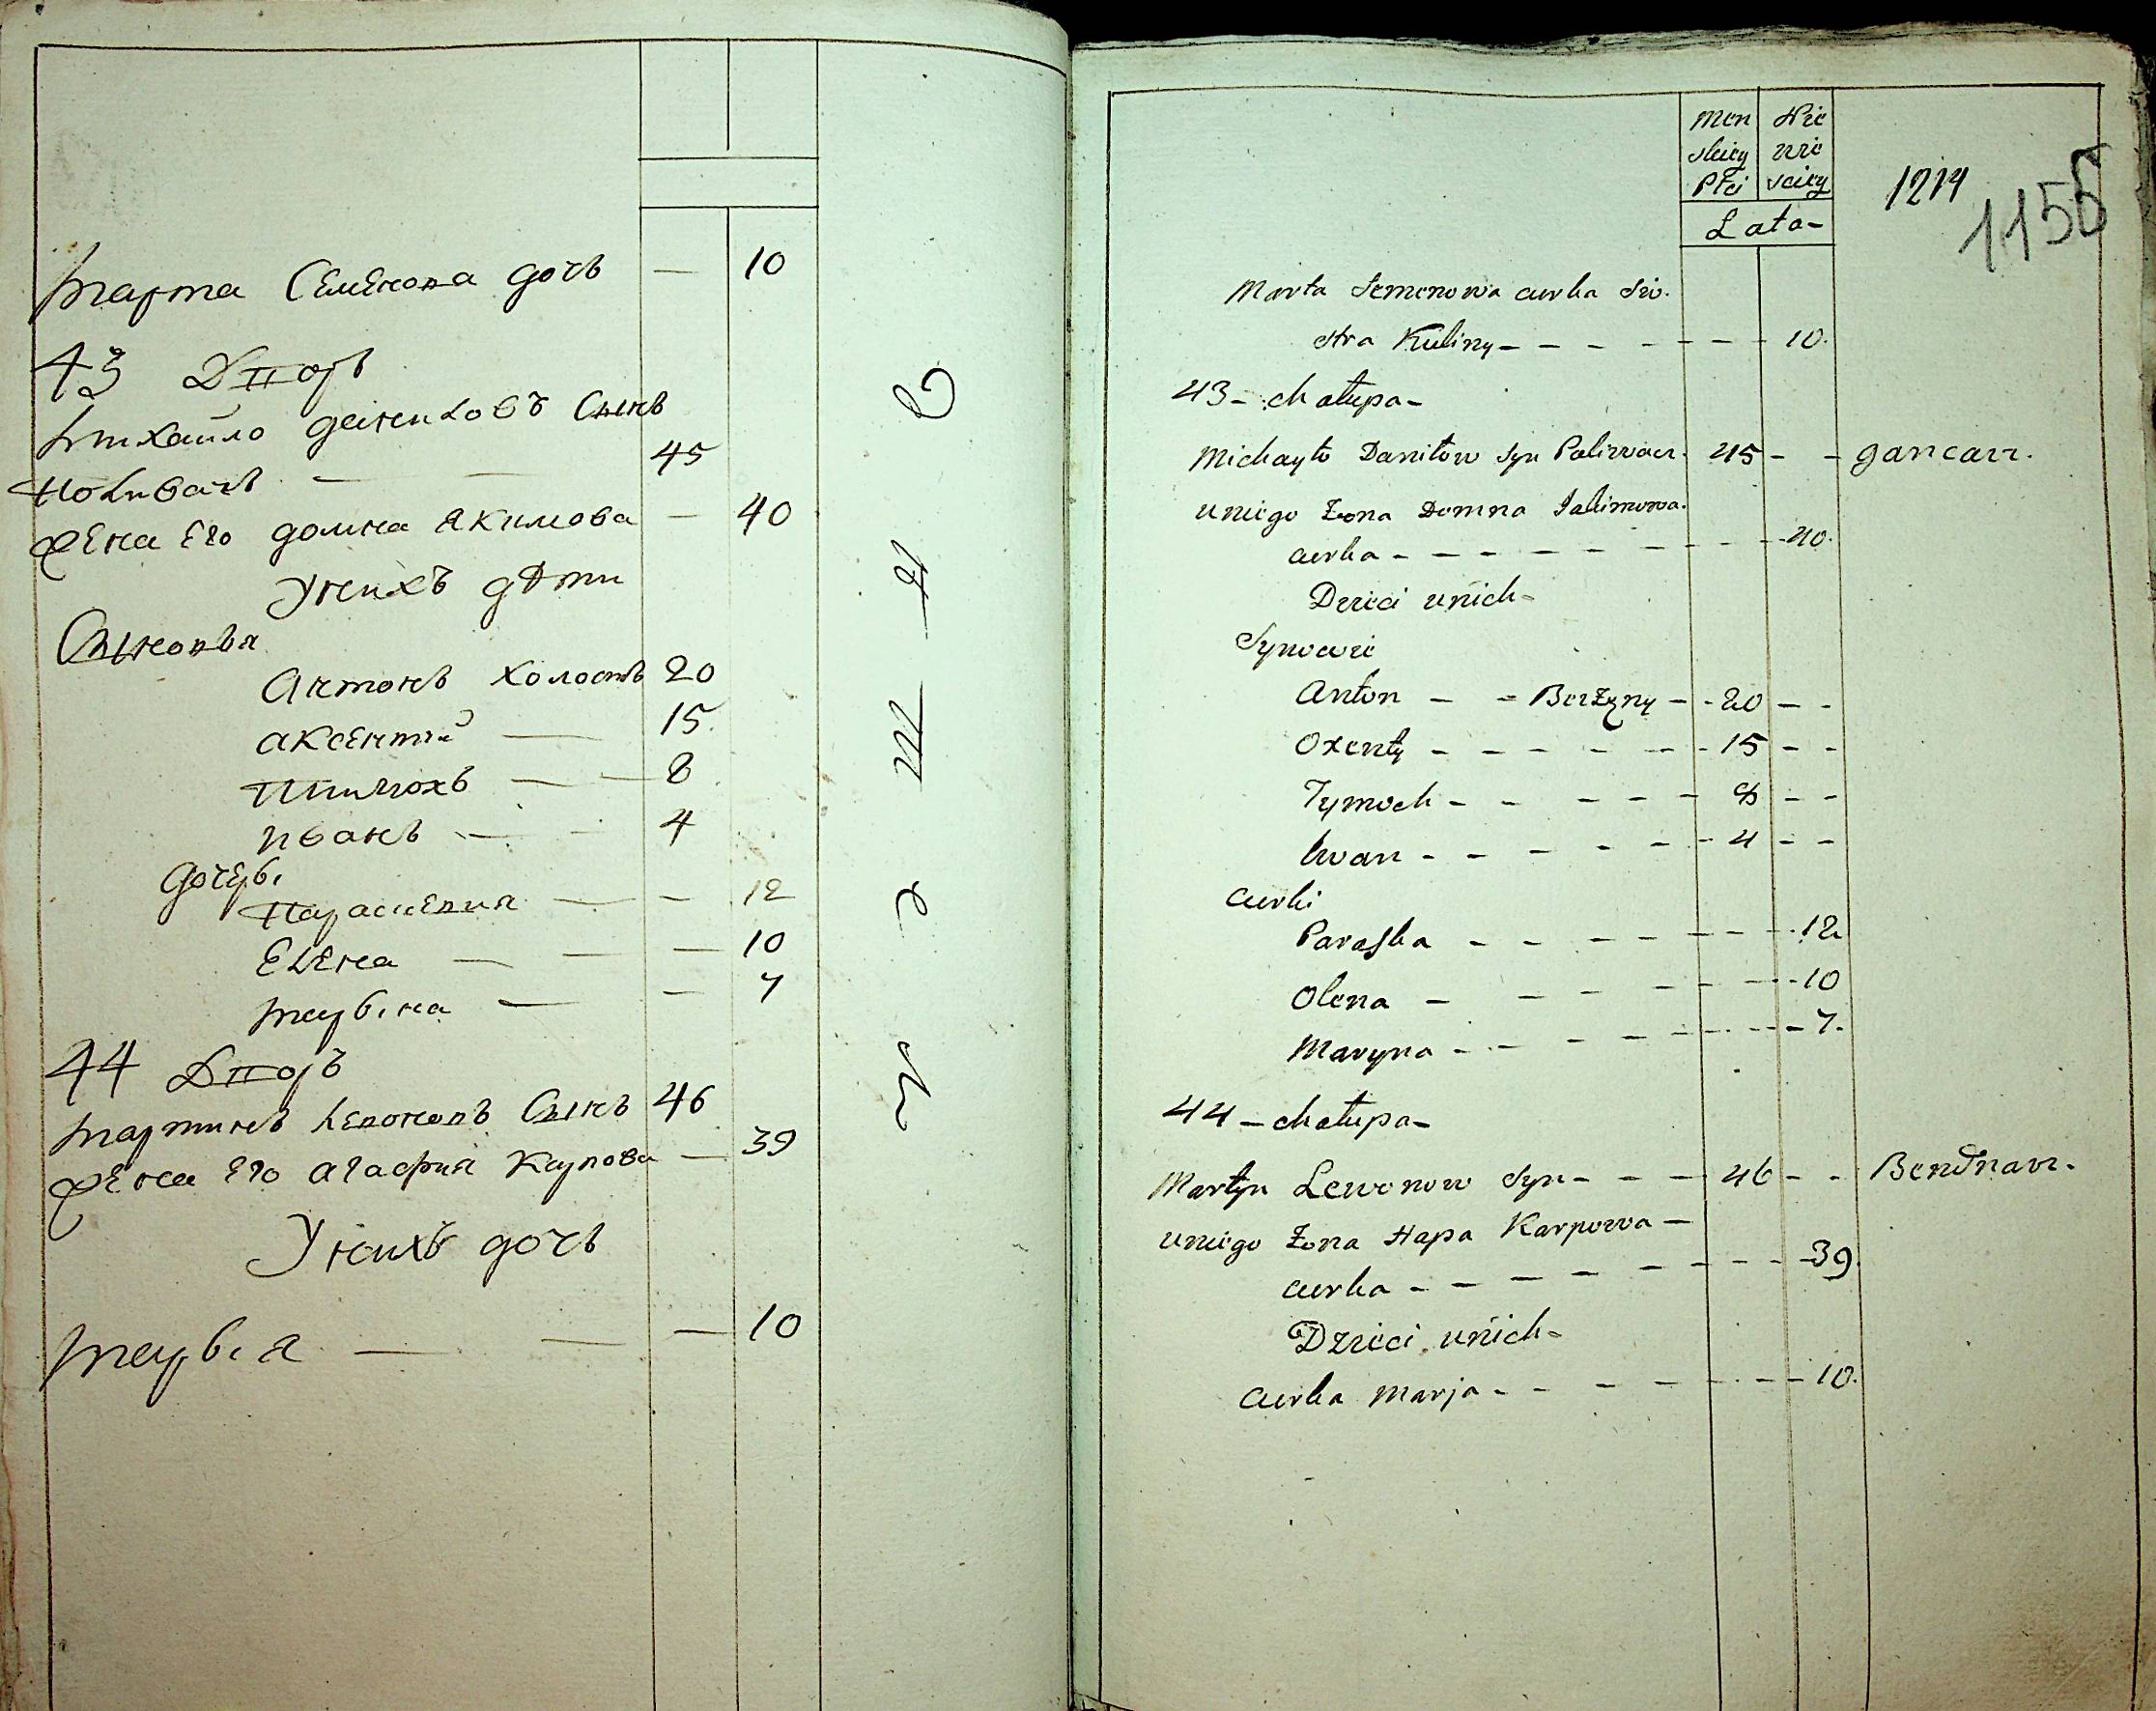 Марта Семенова дочь — 10
43 Дворъ
Михайло даниловъ Сынъ
Поливачь — — 45
Жена Его домна Акимова — 40
Унихъ дѣти
Сыновья
Антонъ холостъ 20
Аксентій — 15.
Тимохъ — — 8
иванъ — — 4
дочеры
Параскевия — — 12
Елена — — — 10
Марына — — 7
44 Дворъ
Мартинъ Левоновъ Сынъ 46
Жена Его Агафия Карпова — 39
Унихъ дочь
Марыя — — — 10
Men Nie
skiey wie
Płci sciey
Lata-
1214
1155
Marta Semenowa curka sio-
stra Kuliny - - - - - - 10.
43 - chałupa -
Michayło Daniłow syn Paliwacz. 45 - - gancarz.
uniego Żona Domna Jakimowa.
curka - - - - - - - - 40.
Dzieci unich -
Synowie
Anton - - Bezżęny - - 20 - -
Oxenty - - - - - - 15 - -
Tymoch - - - - - 8 - -
Iwan - - - - - - 4 - -
curki
Paraska - - - - - - - 12
Olena - - - - - - - 10
Maryna - - - - - - - 7.
44 - chałupa -
Martyn Lewonow syn - - - 46 - - Bendnarz.
uniego Żona Hapa Karpowa -
curka - - - - - - - - 39.
Dzieci unich -
Curka Marja - - - - - - - 10.